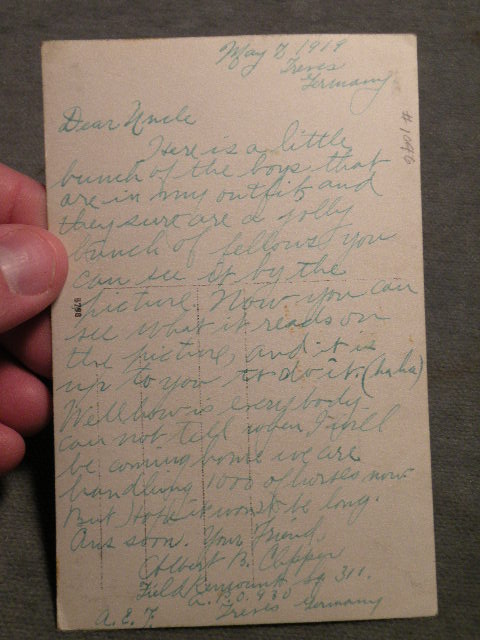 May 7 1919
Treves
Germany
#1040
Dear Uncle
Here is a little
bunch of the boys that
are in my outfit, and
they sure are a jolly
bunch of fellows, you
can see it by the
picture. Now you can
see what it reads on
the picture, and it is
up to you to do it. (ha ha)
Well how is everybody
can not tell when I will
be coming home we are
handling 1000 of horses now
But I hope it wont be long.
Ans soon. Your Friend,
Albert B. Clipper
Field Remount Sq 311.
A.P.O. 930
A. E. F. Treves Germany